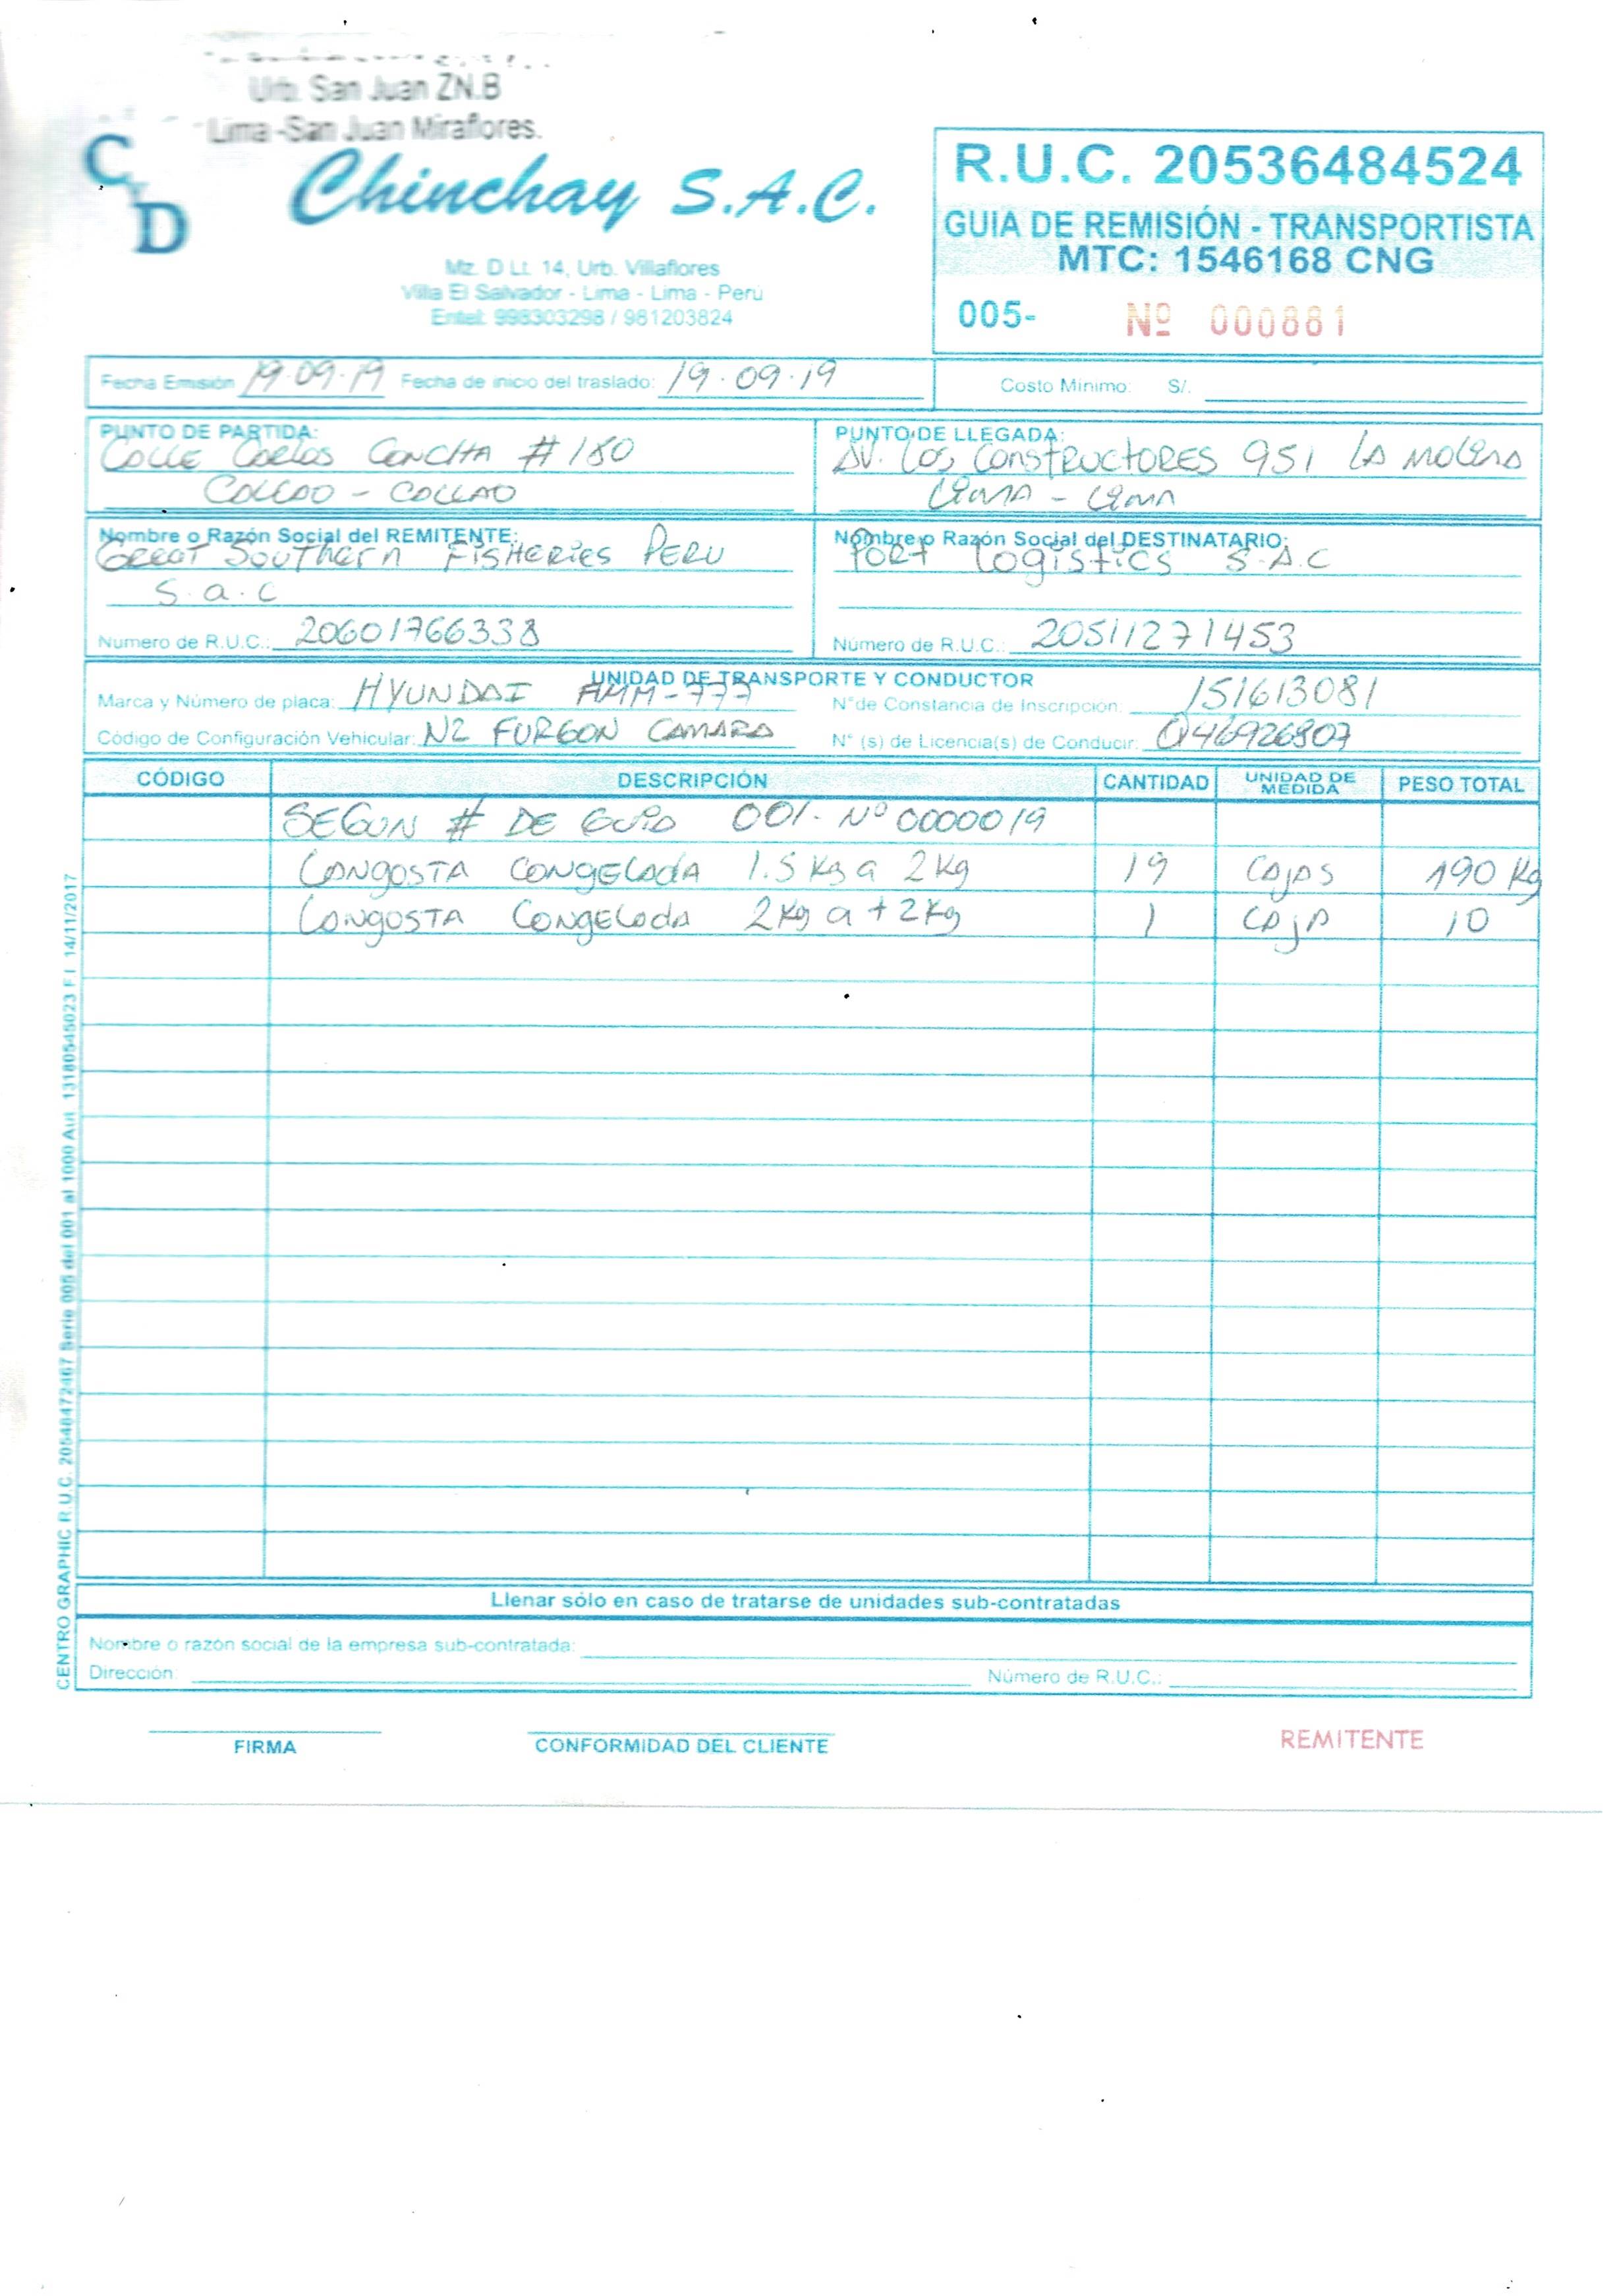 Urb. San Juan ZN.B
Lima -San Juan Miraflores.
C
Y
D
Chinchay S.A.C.
Mz. D Lt. 14, Urb. Villaflores
Villa El Salvador - Lima - Lima - Perú
Entel: 998303298 / 981203824
R.U.C. 20536484524
GUIA DE REMISIÓN - TRANSPORTISTA
MTC: 1546168 CNG
005- Nº 000881
Fecha Emisión 19.09.19 Fecha de inicio del traslado: 19.09.19 Costo Mínimo: S/.
PUNTO DE PARTIDA:
Calle Carlos Concha #180
Callao - Callao
PUNTO DE LLEGADA:
AV. Los Constructores 951 La Molina
Lima - Lima
Nombre o Razón Social del REMITENTE:
Great Southern Fisheries Peru
S.a.c
Numero de R.U.C.: 20601766338
Nombre o Razón Social del DESTINATARIO:
Port Logistics S.A.C
Número de R.U.C.: 20511271453
UNIDAD DE TRANSPORTE Y CONDUCTOR
Marca y Número de placa: HYUNDAI AMM-777 N° de Constancia de Inscripción: 151613081
Código de Configuración Vehicular: N2 FURGON CAMARA N° (s) de Licencia(s) de Conducir: Q46926807
CÓDIGO DESCRIPCIÓN CANTIDAD UNIDAD DE MEDIDA PESO TOTAL
SEGUN # DE GUIA 001- Nº 0000019
LANGOSTA CONGELADA 1.5 Kg a 2 Kg 19 CAJAS 190 Kg
LANGOSTA CONGELADA 2 Kg a + 2 Kg 1 CAJA 10
CENTRO GRAPHIC R.U.C. 20548472467 Serie 005 del 001 al 1000 Aut. 13180545023 F.I. 14/11/2017
Llenar sólo en caso de tratarse de unidades sub-contratadas
Nombre o razón social de la empresa sub-contratada:
Dirección: Número de R.U.C.:
FIRMA CONFORMIDAD DEL CLIENTE REMITENTE